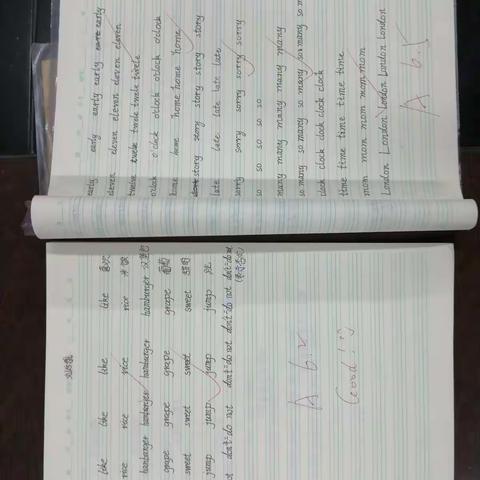 early early early early early
eleven eleven eleven eleven
twelve twelve twelve twelve
o'clock o'clock o'clock o'clock
home home home home
story story story story story
late late late late late
sorry sorry sorry sorry sorry
so so so so so
many many many many many
so many so many so many so many
clock clock clock clock clock
time time time time time
mom mom mom mom mom
London London London London London
A 6.5
like like like like 喜欢
rice rice rice rice 米饭
hamburger hamburger hamburger hamburger 汉堡包
grape grape grape grape 葡萄
sweet sweet sweet sweet 甜的
jump jump jump jump 跳
don't=do not don't=do not don't=do not
A
Good!